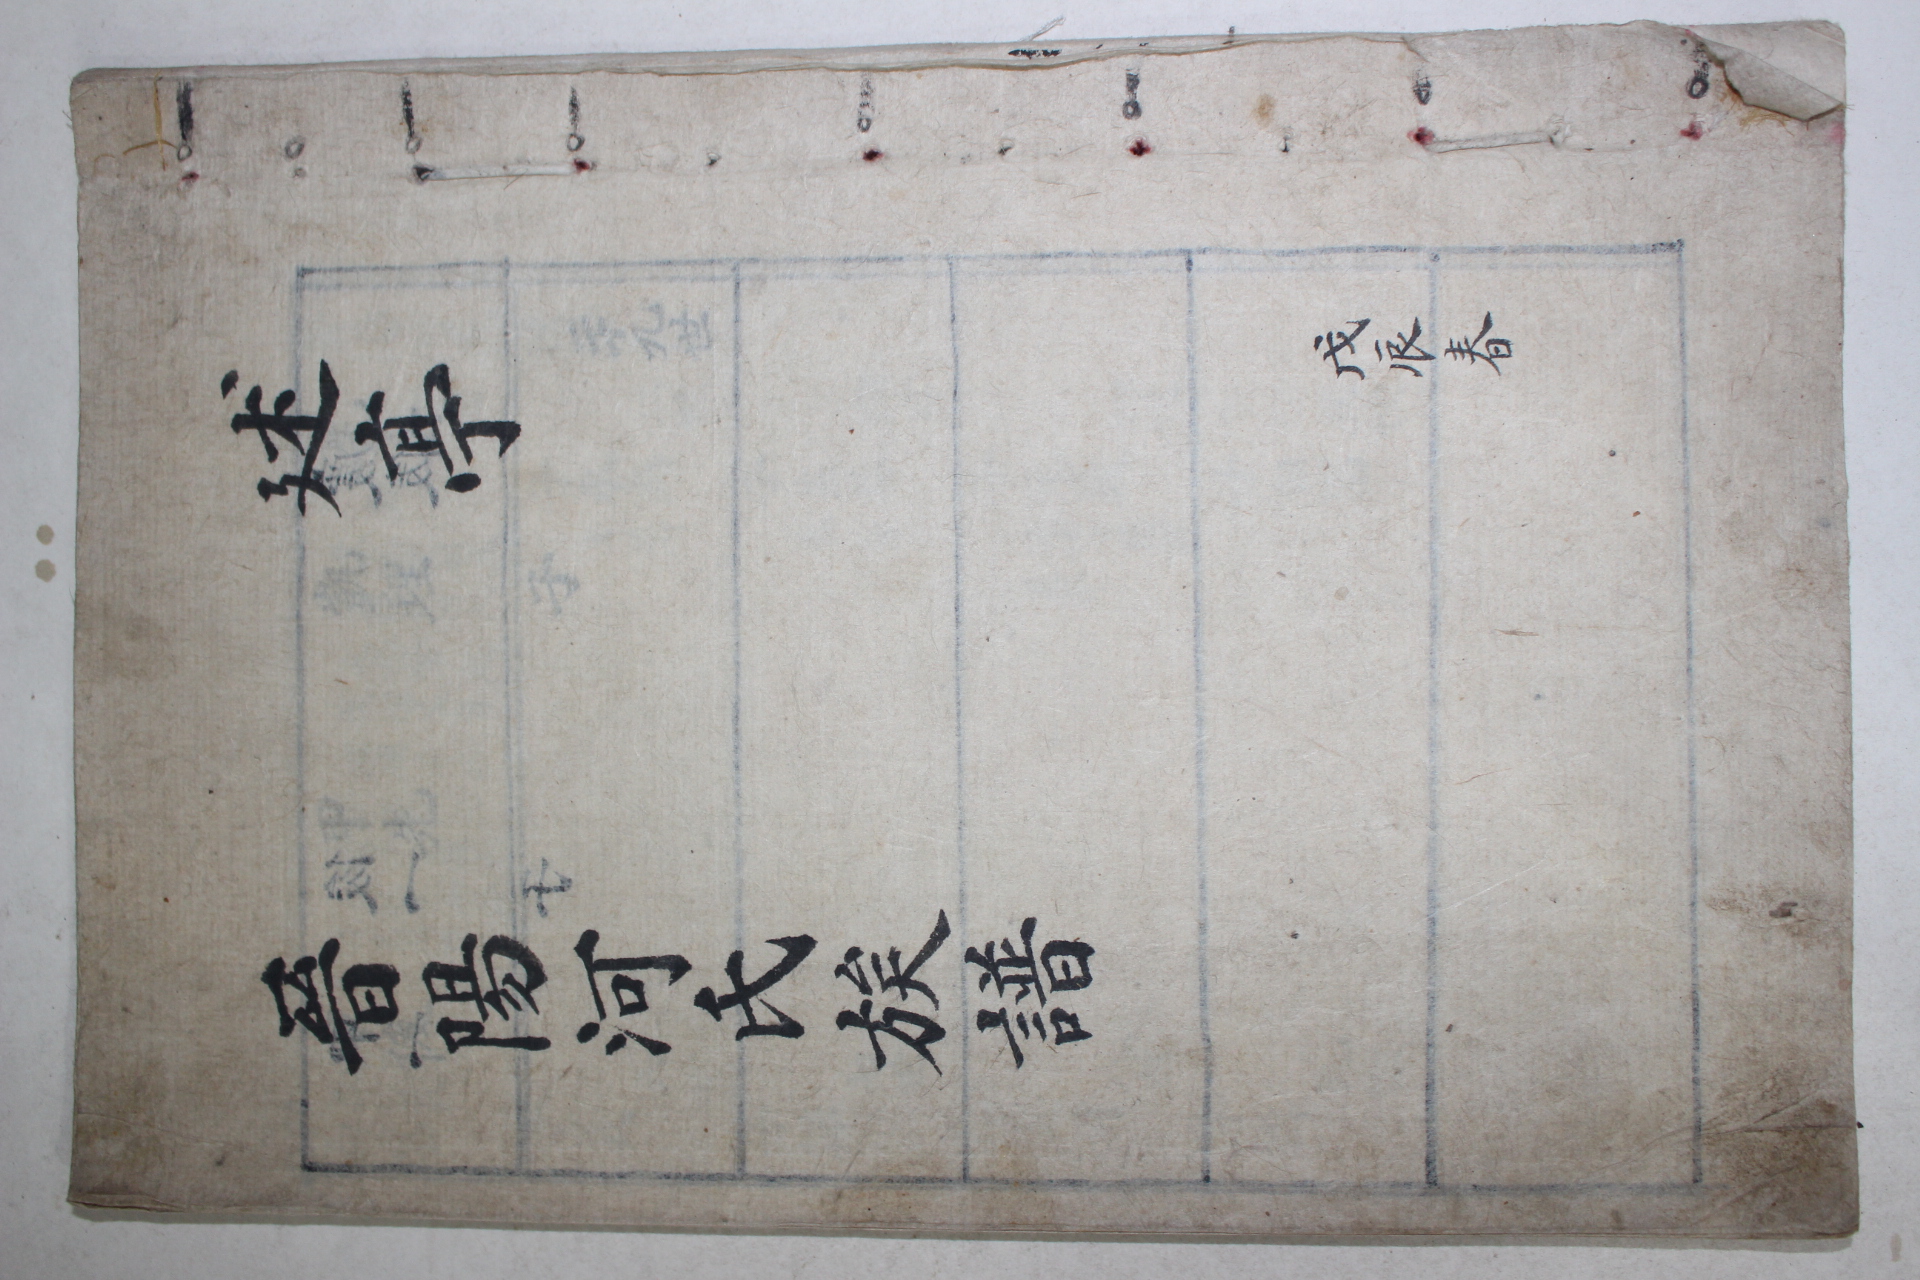 述亭
戊辰春
晉陽河氏族譜